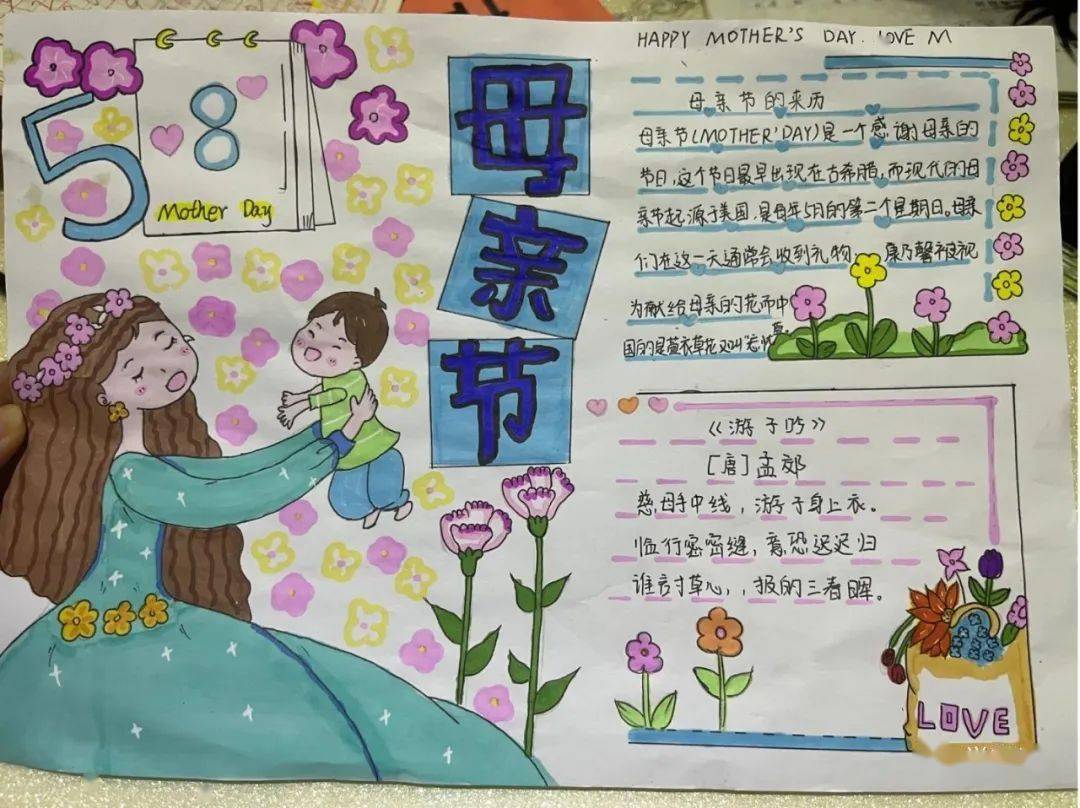 5
8
Mother Day
母亲节
HAPPY MOTHER'S DAY. LOVE M
母亲节的来历
母亲节(MOTHER'DAY)是一个感谢母亲的
节日,这个节日最早出现在古希腊,而现代的母
亲节起源于美国,是每年5月的第二个星期日。母亲
们在这一天通常会收到礼物 康乃馨被视
为献给母亲的花而中
国的是萱草花又叫
《游子吟》
[唐]孟郊
慈母手中线,游子身上衣。
临行密密缝,意恐迟迟归
谁言寸草心,,报的三春晖。
LOVE